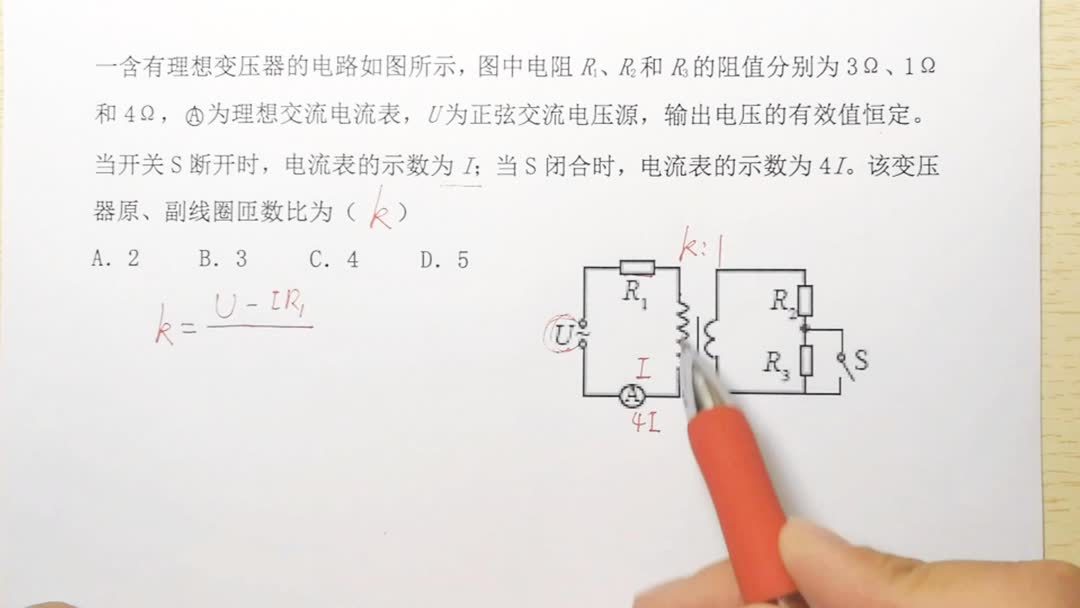 一含有理想变压器的电路如图所示，图中电阻 R₁、R₂和 R₃的阻值分别为 3Ω、1Ω
和 4Ω，Ⓐ为理想交流电流表，U为正弦交流电压源，输出电压的有效值恒定。
当开关 S 断开时，电流表的示数为 I；当 S 闭合时，电流表的示数为 4I。该变压
器原、副线圈匝数比为（ k ）
A. 2 B. 3 C. 4 D. 5
k:1
R₁
R₂
U
~
k = U - IR₁
I
R₃
S
A
4I